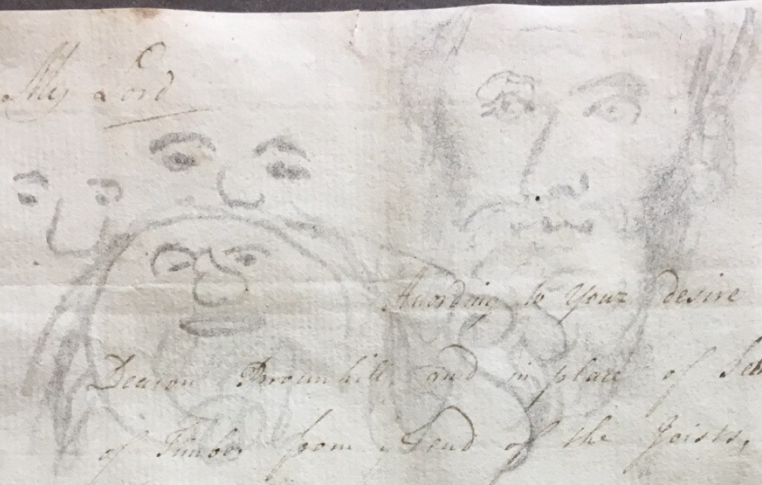 My Lord
According to Your desire
Deacon Brounhill and in place of
of Timber from end of the Joists,